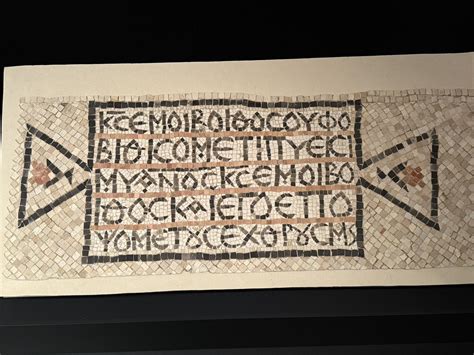 ΚϹΕΜΟΙΒΟΙΘΟϹΟΥΦΟ
ΒΙΘΙϹΟΜΕΤΙΠΥΕϹΙ
ΜΥΑΘΝΟϹΚϹΕΜΟΙΒΟ
ΙΘΟϹΚΑΙΕΓΟΕΠΟ
ΨΟΜΕΤȢϹΕΧΘΡȢϹΜȢ